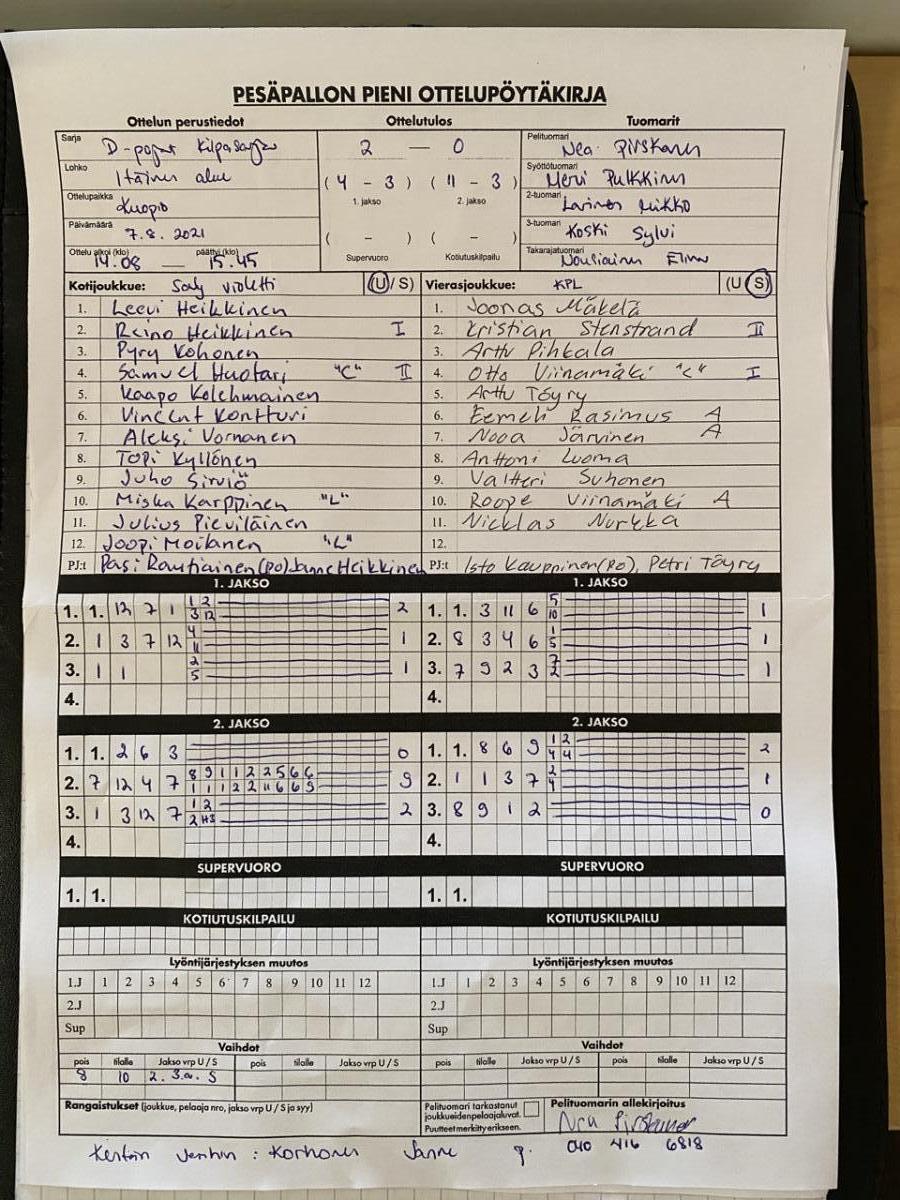 PESÄPALLON PIENI OTTELUPÖYTÄKIRJA
Ottelun perustiedot Ottelutulos Tuomarit
Sarja D-pojat Kilpasarja
2 — 0
Pelituomari Nea Pirskanen
Lohko Itäinen alue
(4 - 3) (11 - 3)
1. jakso 2. jakso
Syöttötuomari Meri Pulkkinen
Ottelupaikka Kuopio
2-tuomari Larinen Mikko
Päivämäärä 7.8.2021
( - ) ( - )
Supervuoro Kotiutuskilpailu
3-tuomari Koski Sylvi
Ottelu alkoi (klo) 14.08 — päättyi (klo) 15.45
Takarajatuomari Nouliainen
Kotijoukkue: violetti (U / S) Vierasjoukkue: KPL (U / S)
1. Leevi Heikkinen 1. Joonas Mäkelä
2. Reino Heikkinen I 2. Kristian Stenstrand II
3. Pyry Kohonen 3. Arttu Pihkala
4. Samuel Huotari "C" II 4. Otto Viinamäki "C" I
5. Kaapo Kolehmainen 5. Arttu Töyry
6. Vincent Kontturi 6. Eemeli Rasimus A
7. Aleksi Vornanen 7. Nooa Järvinen A
8. Topi Kyllönen 8. Anttoni Luoma
9. Juho Sirviö 9. Valtteri Suhonen
10. Miska Karppinen "L" 10. Roope Viinamäki A
11. Julius Pieviläinen 11. Nicklas Nurkka
12. Joopi Moilanen "L" 12.
PJ:t Pasi Rautiainen (PO) Janne Heikkinen PJ:t Isto Kauppinen (PO), Petri Töyry
1. JAKSO 1. JAKSO
1. 1. 12 7 1 1 2 2 1. 1. 3 11 6 5 1
3 12 10
2. 1 3 7 12 4 1 2. 8 3 4 6 1 1
11 5
3. 1 1 2 1 3. 7 9 2 3 7 1
5 2
4. 4.
2. JAKSO 2. JAKSO
1. 1. 2 6 3 0 1. 1. 8 6 9 1 2 2
4 4
2. 7 12 4 7 8 9 1 1 2 2 5 6 6 9 2. 1 1 3 7 2 1
1 1 1 2 2 11 6 6 9 4
3. 1 3 12 7 1 2 2 3. 8 9 1 2 0
2 H3
4. 4.
SUPERVUORO SUPERVUORO
1. 1. 1. 1.
KOTIUTUSKILPAILU KOTIUTUSKILPAILU
Lyöntijärjestyksen muutos Lyöntijärjestyksen muutos
1.J 1 2 3 4 5 6 7 8 9 10 11 12 1.J 1 2 3 4 5 6 7 8 9 10 11 12
2.J 2.J
Sup Sup
Vaihdot Vaihdot
pois tilalle Jakso vrp U / S pois tilalle Jakso vrp U / S pois tilalle Jakso vrp U / S pois tilalle Jakso vrp U / S
8 10 2. 3.a. S
Rangaistukset (joukkue, pelaaja nro, jakso vrp U / S ja syy)
Pelituomari tarkastanut
joukkueidenpelaajaluvat.
Puutteet merkitty erikseen.
Pelituomarin allekirjoitus
Nea Pirskanen
040 416 6818
Korhonen Janne p.